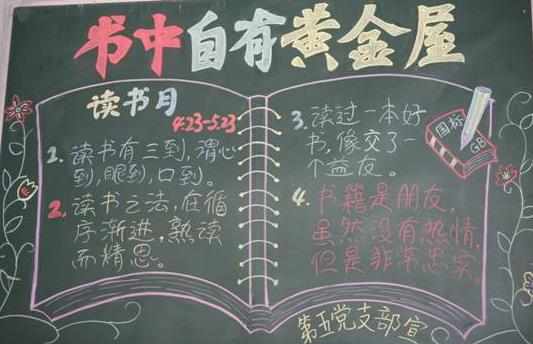 书中自有黄金屋
读书月
4.23-5.23
1. 读书有三到,谓心
到,眼到,口到。
2. 读书之法,在循
序渐进,熟读
而精思。
3. 读过一本好
书,像交了一
个益友。
4. 书籍是朋友,
虽然没有热情,
但是非常忠实
国标
GB
第五党支部宣